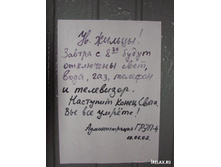 Ув. жильцы!
Завтра с 8 30 будут
отключены свет,
вода, газ, телефон
и телевизор.
Наступит Конец Света
Вы все умрёте!
Администрация
RELAX.RU